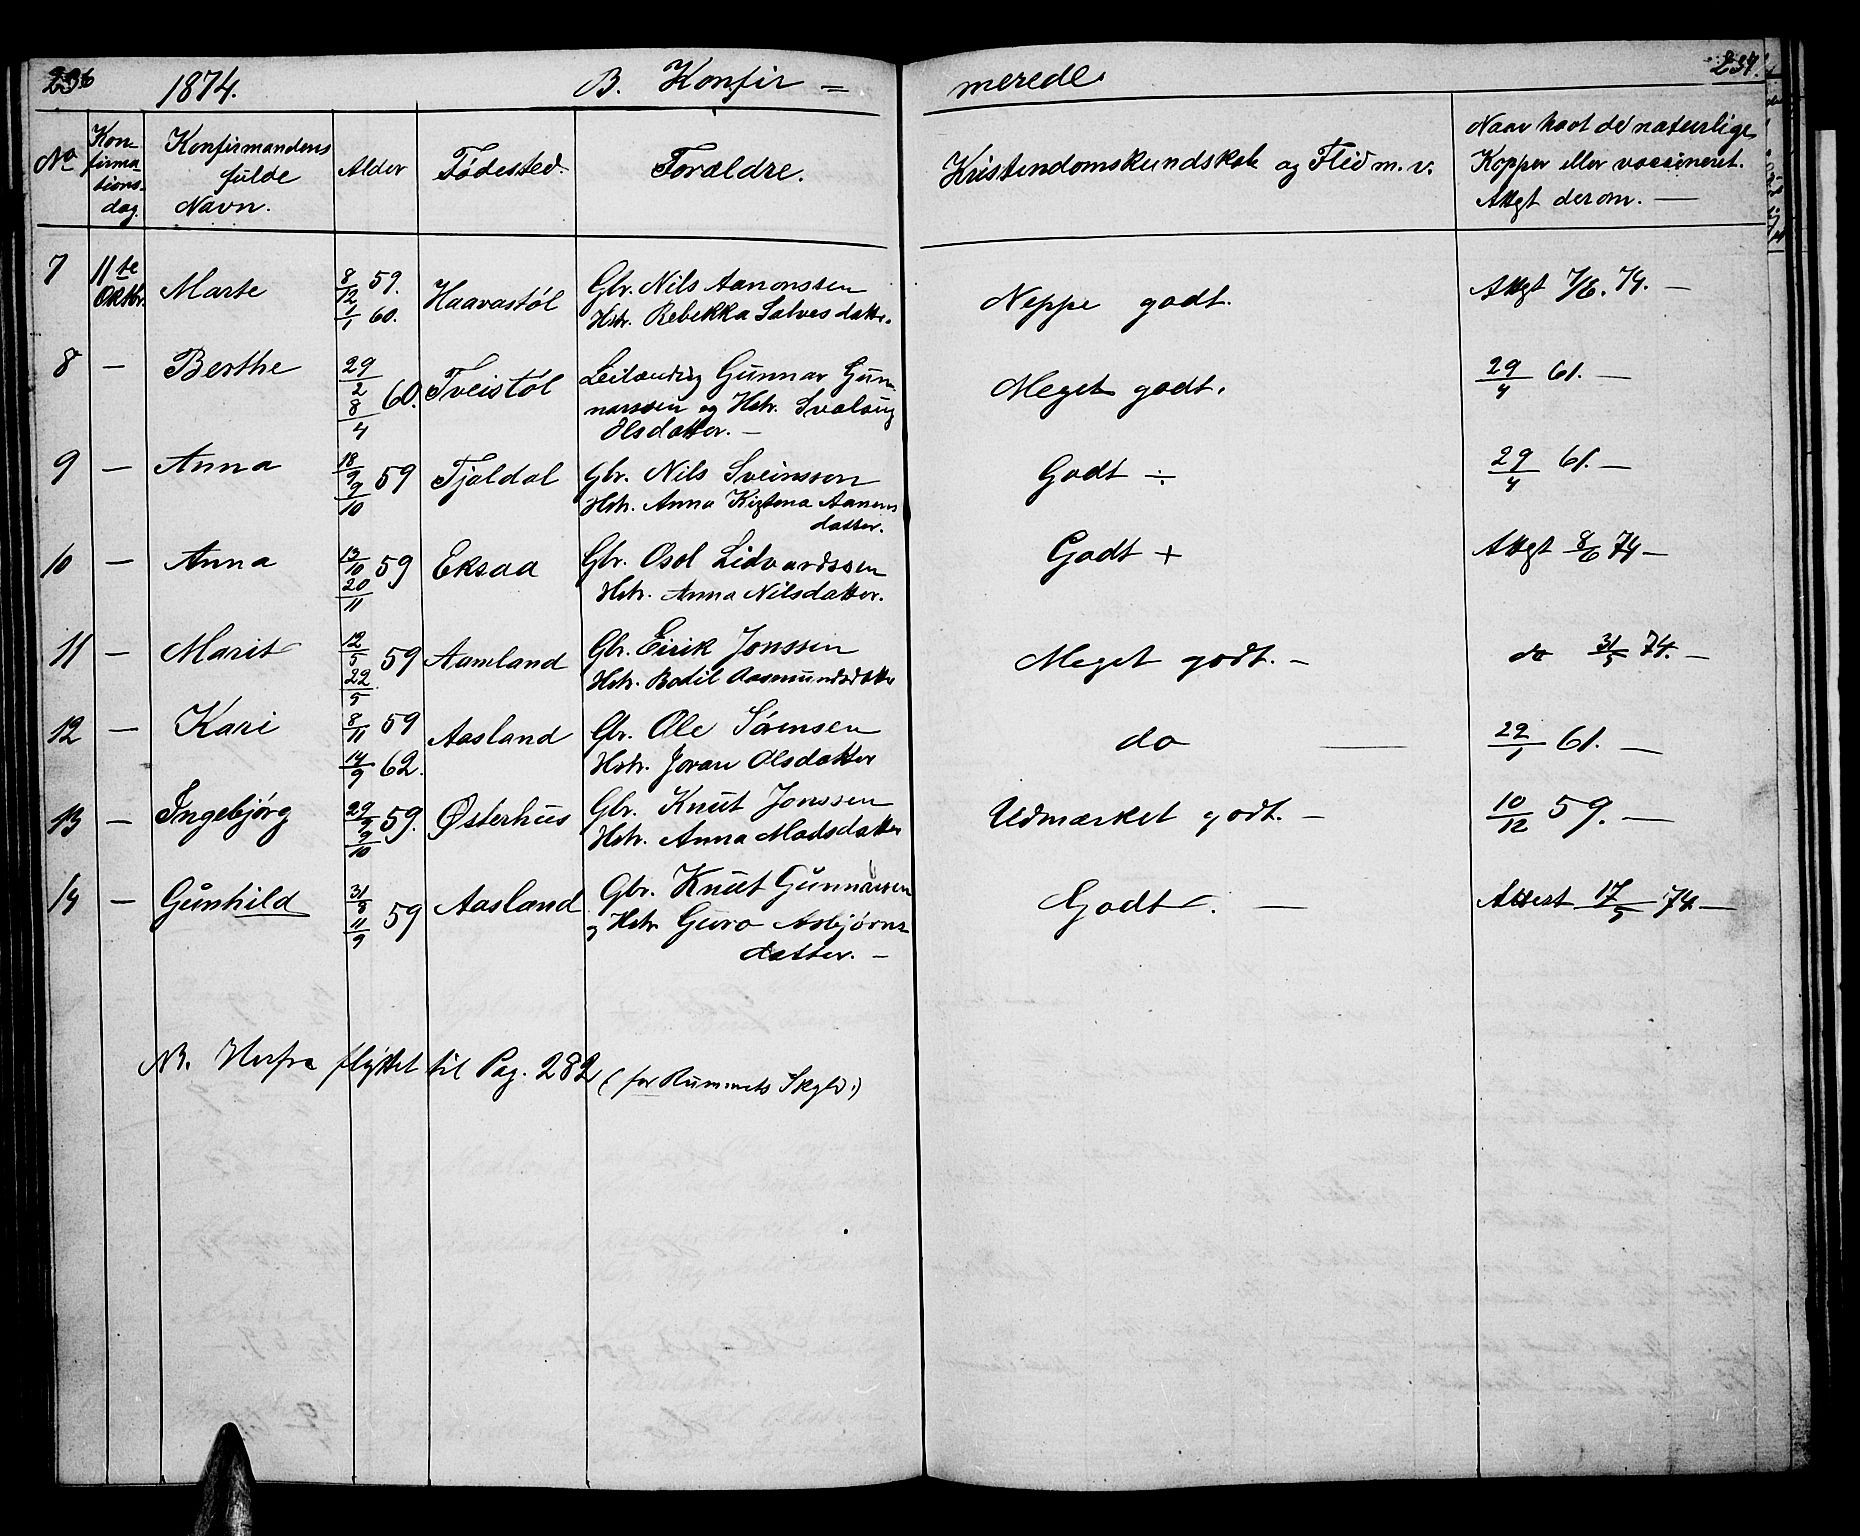 236 1874. B. Konfir = merede 237.
No Kon- firma- tions- dag. Konfirmandens fulde Navn. Alder Fødested. Forældre. Kristendomskundskab og Flid m. v. Naar havt de naturlige Kopper eller vaccineret. Attest derom. —
7 11te Oktbr. Marte 8/12 59. 1/1 60. Haavastøl Gbr. Nils Aanonssen Neppe godt. Attgt 7/6. 74. —
Hstr. Rebekka Salvesdatter.
8 — Berthe 29/2 8/4 60. Tveistøl Leilænding Gunnar Gun- Meget godt. 29/4 61. —
narssen og Hstr. Svalaug
Olsdatter. —
9 — Anna 18/9 9/10 59 Tjaldal Gbr. Nils Sveinsson Godt ÷ 29/4 61. —
Hstr. Anna Aanons
datter.
10 — Anna 13/10 20/11 59 Eksaa Gbr. Osol Lidvardssen Godt + Attgt 8/6 74 —
Hstr. Anna Nilsdatter.
11 — Marit 12/5 22/5 59 Aamland Gbr. Eirik Jonssen Meget godt. — do 31/5 74. —
Hstr. Bodil Aasmundsdatter
12 — Kari 8/11 59 14/9 62. Aasland Gbr. Ole Sørensen do — 22/1 61. —
Hstr. Joran Olsdatter
13 — Ingebjørg 29/9 9/10 59. Østerhus Gbr. Knut Jonssen Udmærket godt. — 10/12 59. —
Hstr. Anna Madsdatter
14 — Gunhild 31/8 11/9 59 Aasland Gbr. Knut Gunnarssen Godt. — Attest 17/5 74. —
og Hstr Guro Asbjørns-
datter. —
NB. Herfra flyttet til Pag. 282 (for Rummets Skyld.)